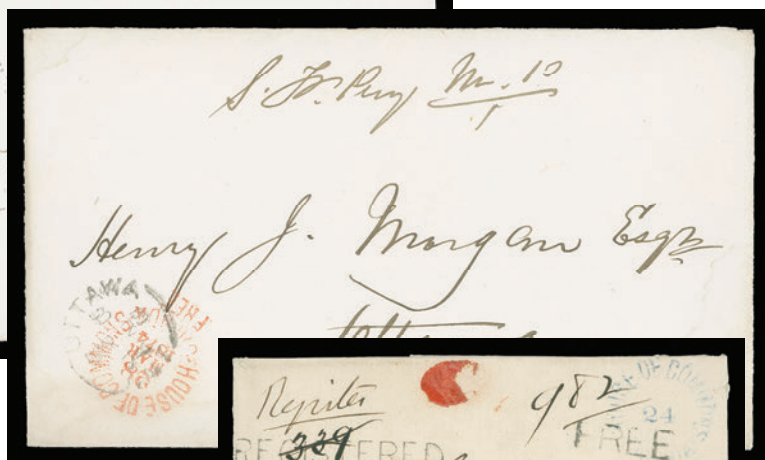 S. F. Perry M. P.
Henry J. Morgan Esqr
Ottawa
OTTAWA
HOUSE OF COMMONS
FREE
CANADA
Register
982
339
REGISTERED
HOUSE OF COMMONS
24
FREE